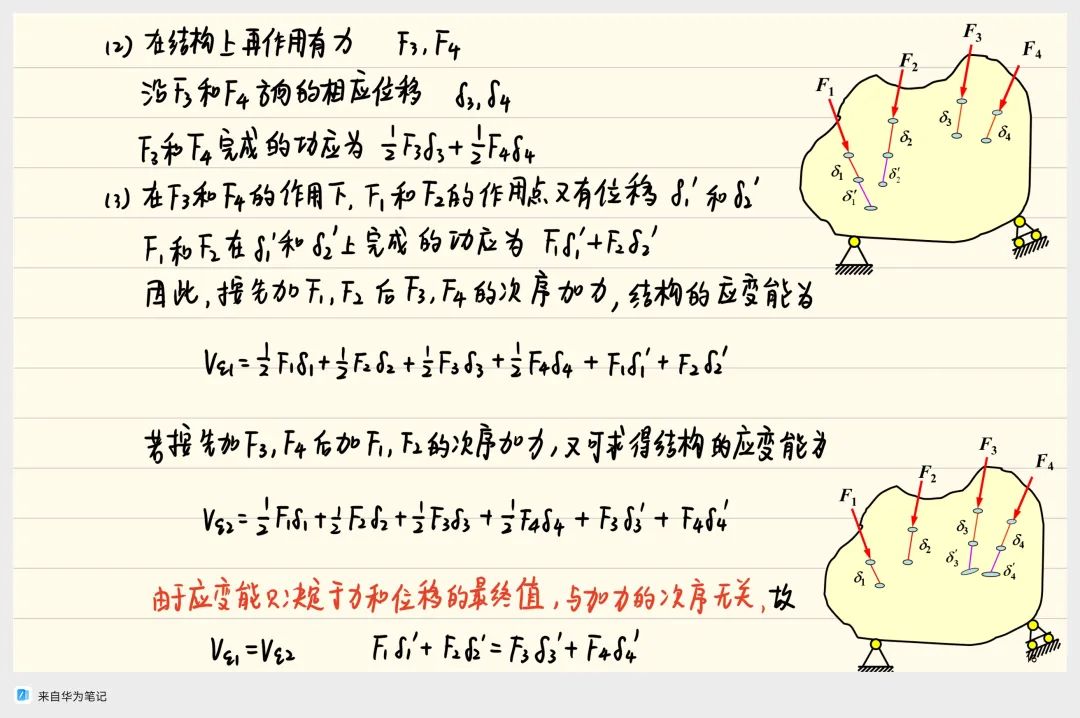 (2) 在结构上再作用有力 F3, F4
沿F3和F4方向的相应位移 δ3, δ4
F3和F4完成的功应为 ½F3δ3+½F4δ4
(3) 在F3和F4的作用下, F1和F2的作用点又有位移 δ1′和δ2′
F1和F2在δ1′和δ2′上完成的功应为 F1δ1′+F2δ2′
因此, 按先加F1, F2后F3, F4的次序加力, 结构的应变能为
Vε1=½F1δ1+½F2δ2+½F3δ3+½F4δ4+F1δ1′+F2δ2′
若按先加F3, F4后加F1, F2的次序加力, 又可求得结构的应变能为
Vε2=½F1δ1+½F2δ2+½F3δ3+½F4δ4+F3δ3′+F4δ4′
由于应变能只决定于力和位移的最终值, 与加力的次序无关, 故
Vε1=Vε2 F1δ1′+F2δ2′=F3δ3′+F4δ4′
F1 F2 F3 F4
δ1 δ1′ δ2 δ2′ δ3 δ4
F1 F2 F3 F4
δ1 δ2 δ3 δ3′ δ4 δ4′
来自华为笔记